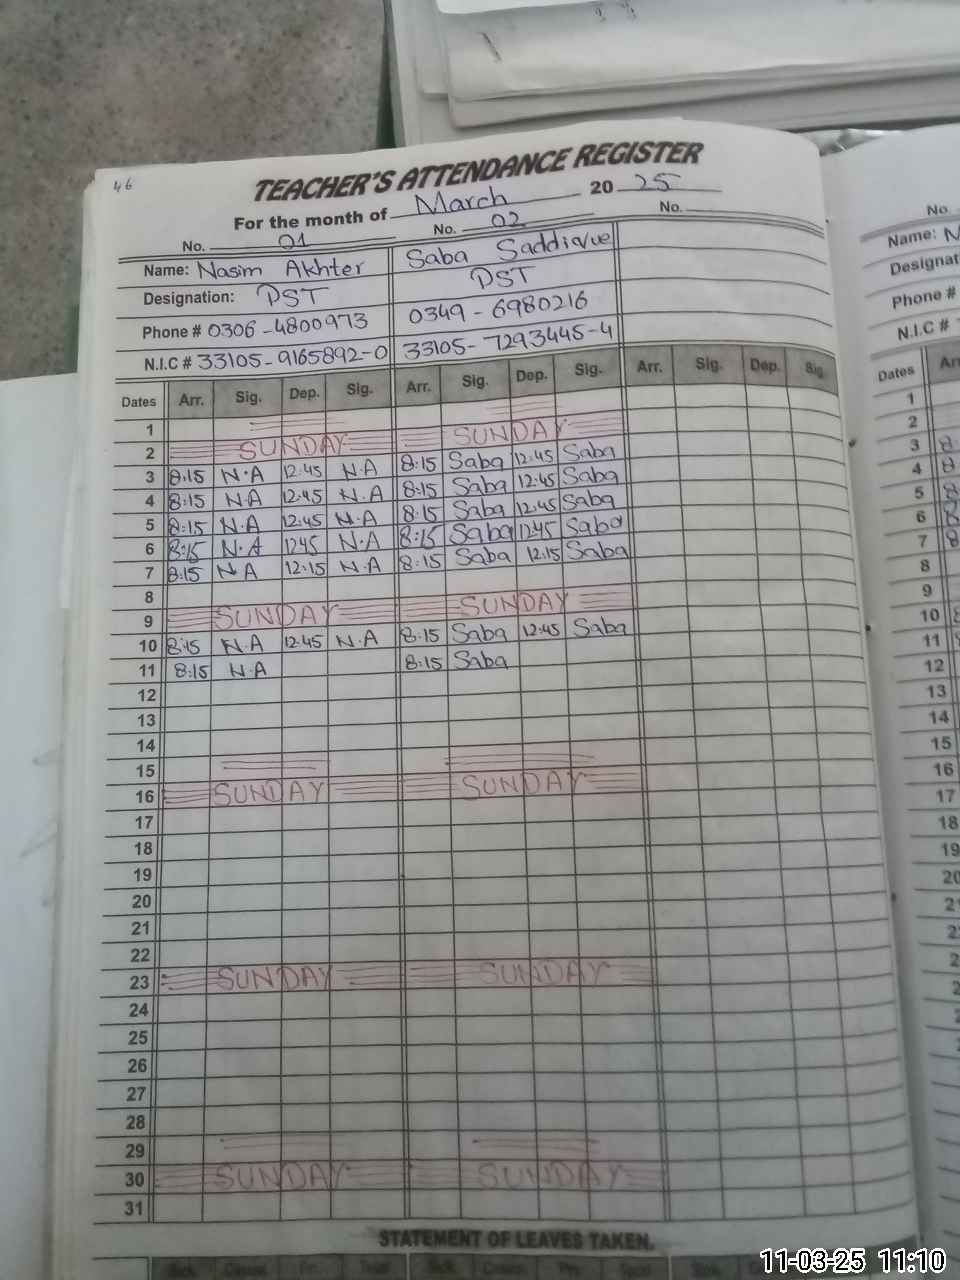 46
TEACHER'S ATTENDANCE REGISTER
For the month of March 2025
No. 01 No. 02 No.
Name: Nasim Akhter Saba Saddique
Designation: PST PST
Phone # 0306-4800973 0349-6980216
N.I.C # 33105-9165892-0 33105-7293445-4
Dates Arr. Sig. Dep. Sig. Arr. Sig. Dep. Sig. Arr. Sig. Dep. Sig.
1
2 SUNDAY SUNDAY
3 8:15 N.A 12:45 N.A 8:15 Saba 12:45 Saba
4 8:15 N.A 12:45 N.A 8:15 Saba 12:45 Saba
5 8:15 N.A 12:45 N.A 8:15 Saba 12:45 Saba
6 8:15 N.A 12:45 N.A 8:15 Saba 12:45 Saba
7 8:15 N.A 12:15 N.A 8:15 Saba 12:15 Saba
8
9 SUNDAY SUNDAY
10 8:15 N.A 12:45 N.A 8:15 Saba 12:45 Saba
11 8:15 N.A 8:15 Saba
12
13
14
15
16 SUNDAY SUNDAY
17
18
19
20
21
22
23 SUNDAY SUNDAY
24
25
26
27
28
29
30 SUNDAY SUNDAY
31
STATEMENT OF LEAVES TAKEN.
No.
Name:
Phone #
N.I.C #
Dates
1
2
3
4
5
6
7
8
9
10
11
12
13
14
15
16
17
18
19
20
11-03-25 11:10